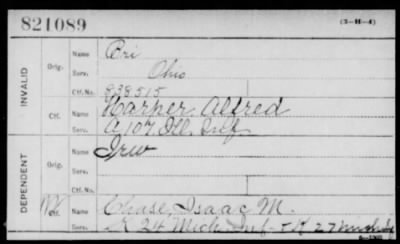 821089
(3-H-4)
INVALID
Orig.
Name Bri
Serv. Ohio
Ctf. No. 838515
Ctf.
Name Harper Alfred
Serv. A 107 Ill. Inf.
DEPENDENT
Orig.
Name Irw
Serv.
Ctf. No.
Ctf.
Name Chase, Isaac M.
Serv. K 24 Mich Inf - K 27 Mich Inf